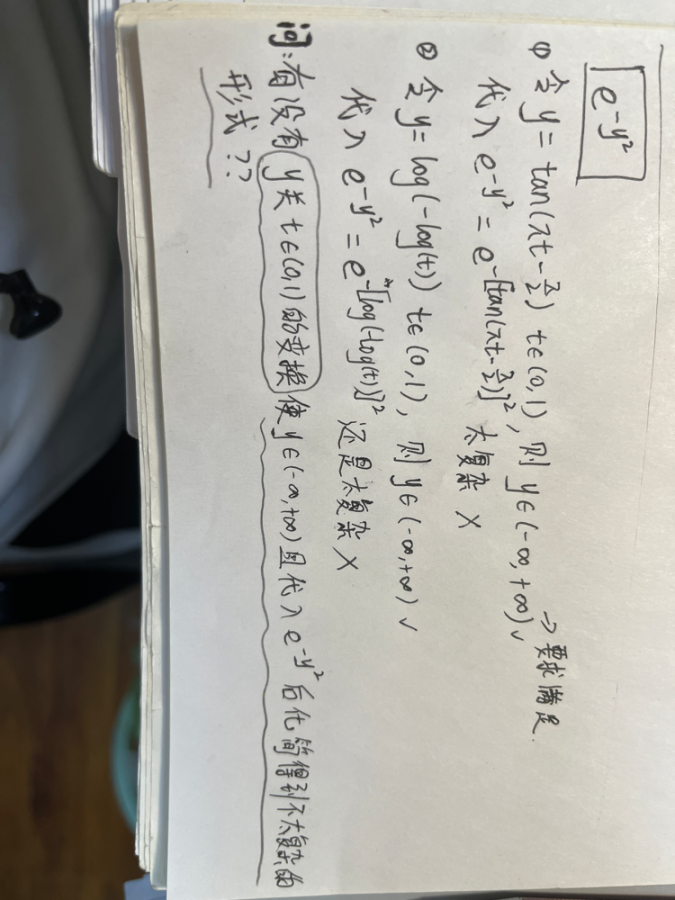 e^{-y²}
① 令 y = tan(πt - π/2) t∈(0,1), 则 y∈(-∞,+∞) ✓ → 要求满足.
代入 e^{-y²} = e^{-[tan(πt-π/2)]²} 太复杂 ×
② 令 y = log(-log(t)) t∈(0,1), 则 y∈(-∞,+∞) ✓
代入 e^{-y²} = e^{-[log(-log(t))]²} 还是太复杂 ×
问:有没有 y关t∈(0,1)的变换 使y∈(-∞,+∞)且代入e^{-y²}后化简得到不太复杂的
形式??